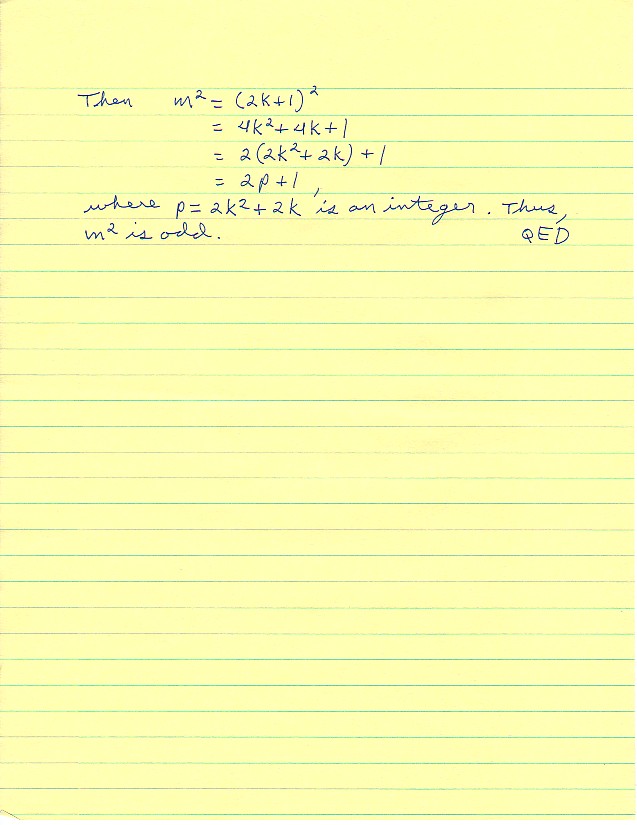 Then m² = (2k+1)²
= 4k² + 4k + 1
= 2(2k² + 2k) + 1
= 2p + 1,
where p = 2k² + 2k is an integer. Thus,
m² is odd. QED